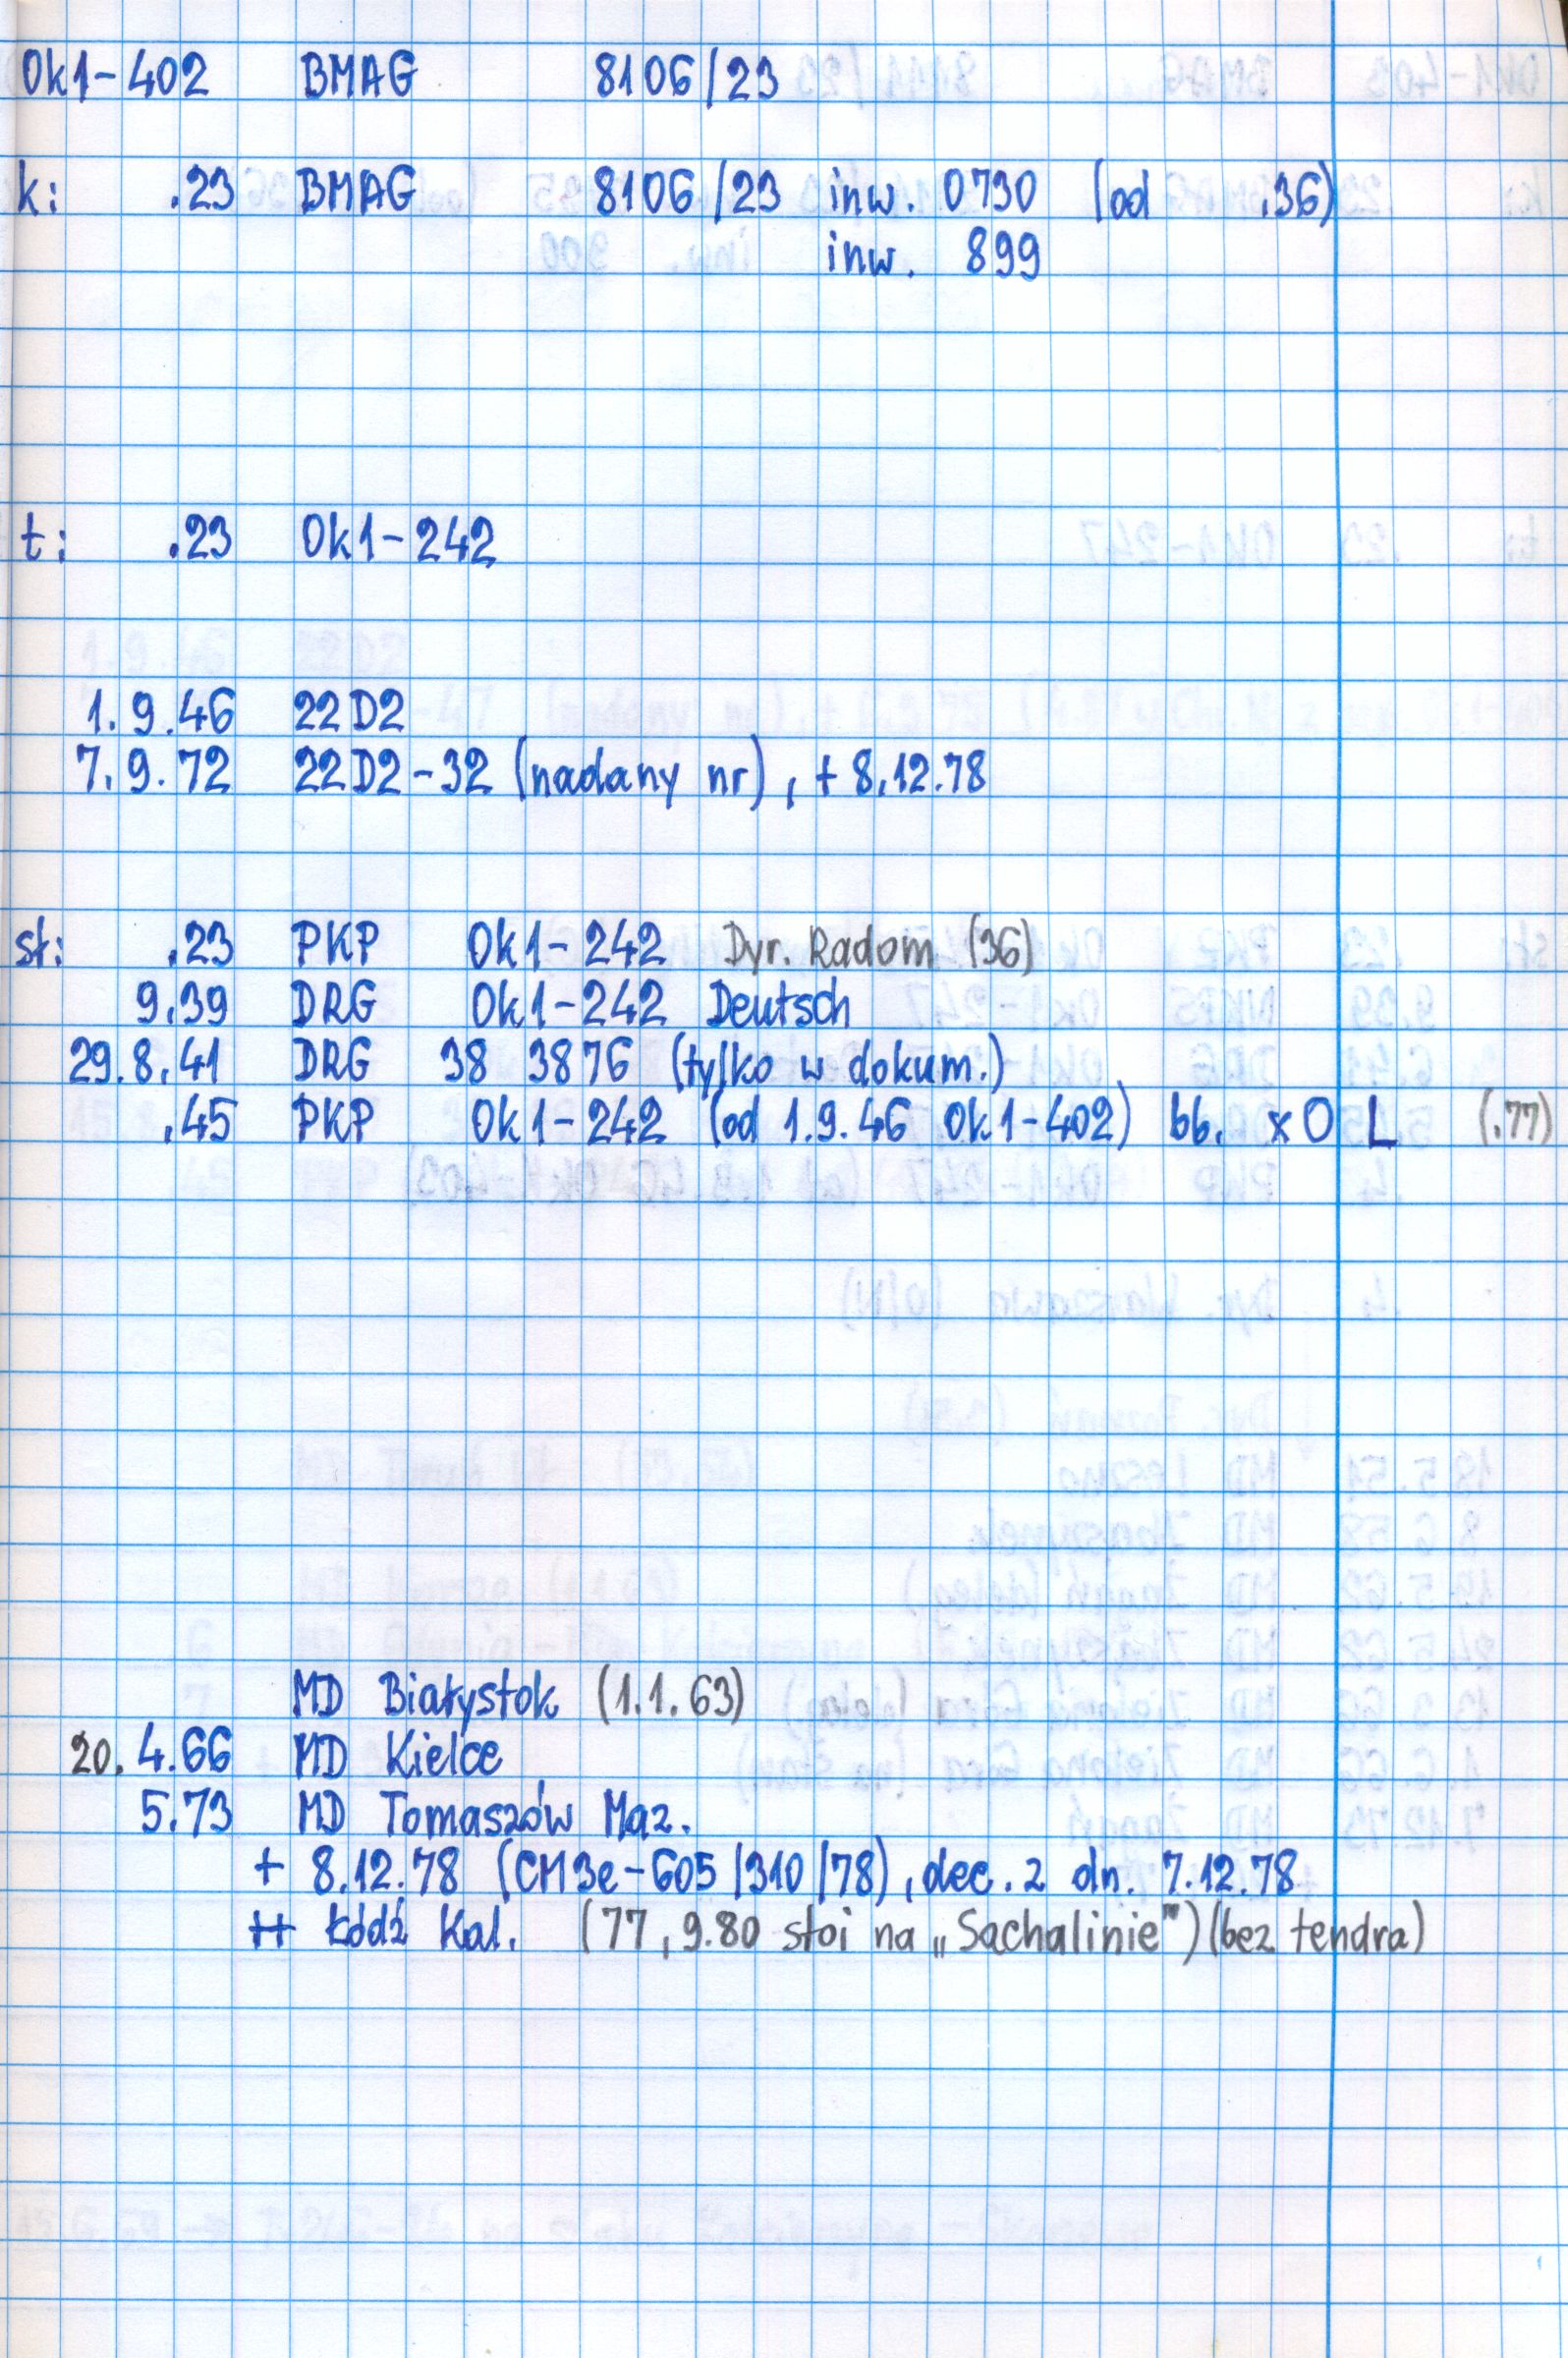 Ok1-402 BMAG 8106/23
k: .23 BMAG 8106/23 inw. 0730 (od .36)
inw. 899
t: .23 Ok1-242
1.9.46 22D2
7.9.72 22D2-32 (nadany nr), + 8.12.78
st: .23 PKP Ok1-242 Dyr. Radom (36)
9.39 DRG Ok1-242 Deutsch
29.8.41 DRG 38 3876 (tylko w dokum.)
.45 PKP Ok1-242 (od 1.9.46 Ok1-402) bb. x O L (.77)
MD Białystok (1.1.63)
20.4.66 MD Kielce
5.73 MD Tomaszów Maz.
+ 8.12.78 (CM3e-605/310/78), dec. z dn. 7.12.78
++ Łódź Kal. (77, 9.80 stoi na „Sachalinie") (bez tendra)